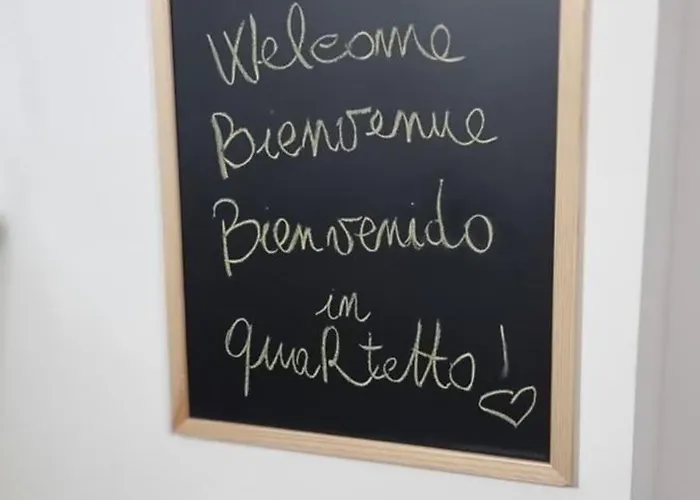 Welcome
Bienvenue
Bienvenido
in
quaRtetto!